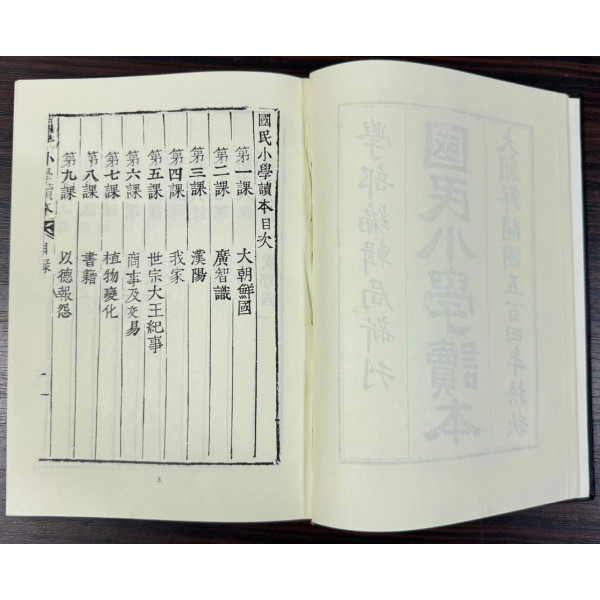 大朝鮮開國五百四年梧秋
國民小學讀本
學部編輯局新刊
國民小學讀本目次
第一課 大朝鮮國
第二課 廣智識
第三課 漢陽
第四課 我家
第五課 世宗大王紀事
第六課 商事及交易
第七課 植物變化
第八課 書籍
第九課 以德報怨
小學讀本 目錄 一
3